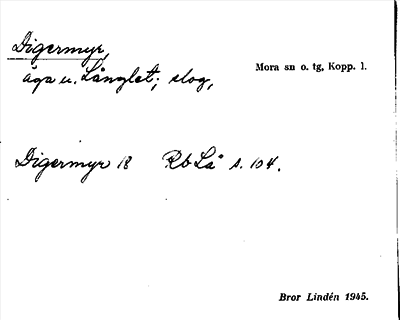 Digermyr,
Mora sn o. tg, Kopp. l.
äga u. Långlet; slog,
Digermyr 18 Rb Lå s. 104.
Bror Lindén 1945.